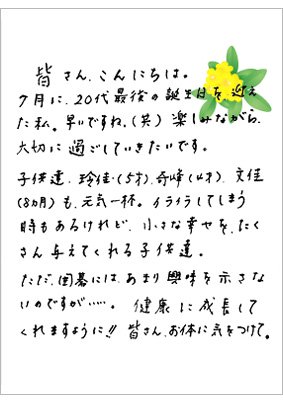 皆さん、こんにちは。
7月に、20代最後の誕生日を迎え
た私。早いですね。(笑) 楽しみながら、
大切に過ごしていきたいです。
子供達、玲佳(5才)、奇峰(4才)、文佳
(8ヵ月)も、元気一杯。イライラしてしまう
時もあるけれど、小さな幸せを、たく
さん与えてくれる子供達。
ただ、囲碁には、あまり興味を示さな
いのですが……。健康に成長して
くれますように!! 皆さん、お体に気をつけて。